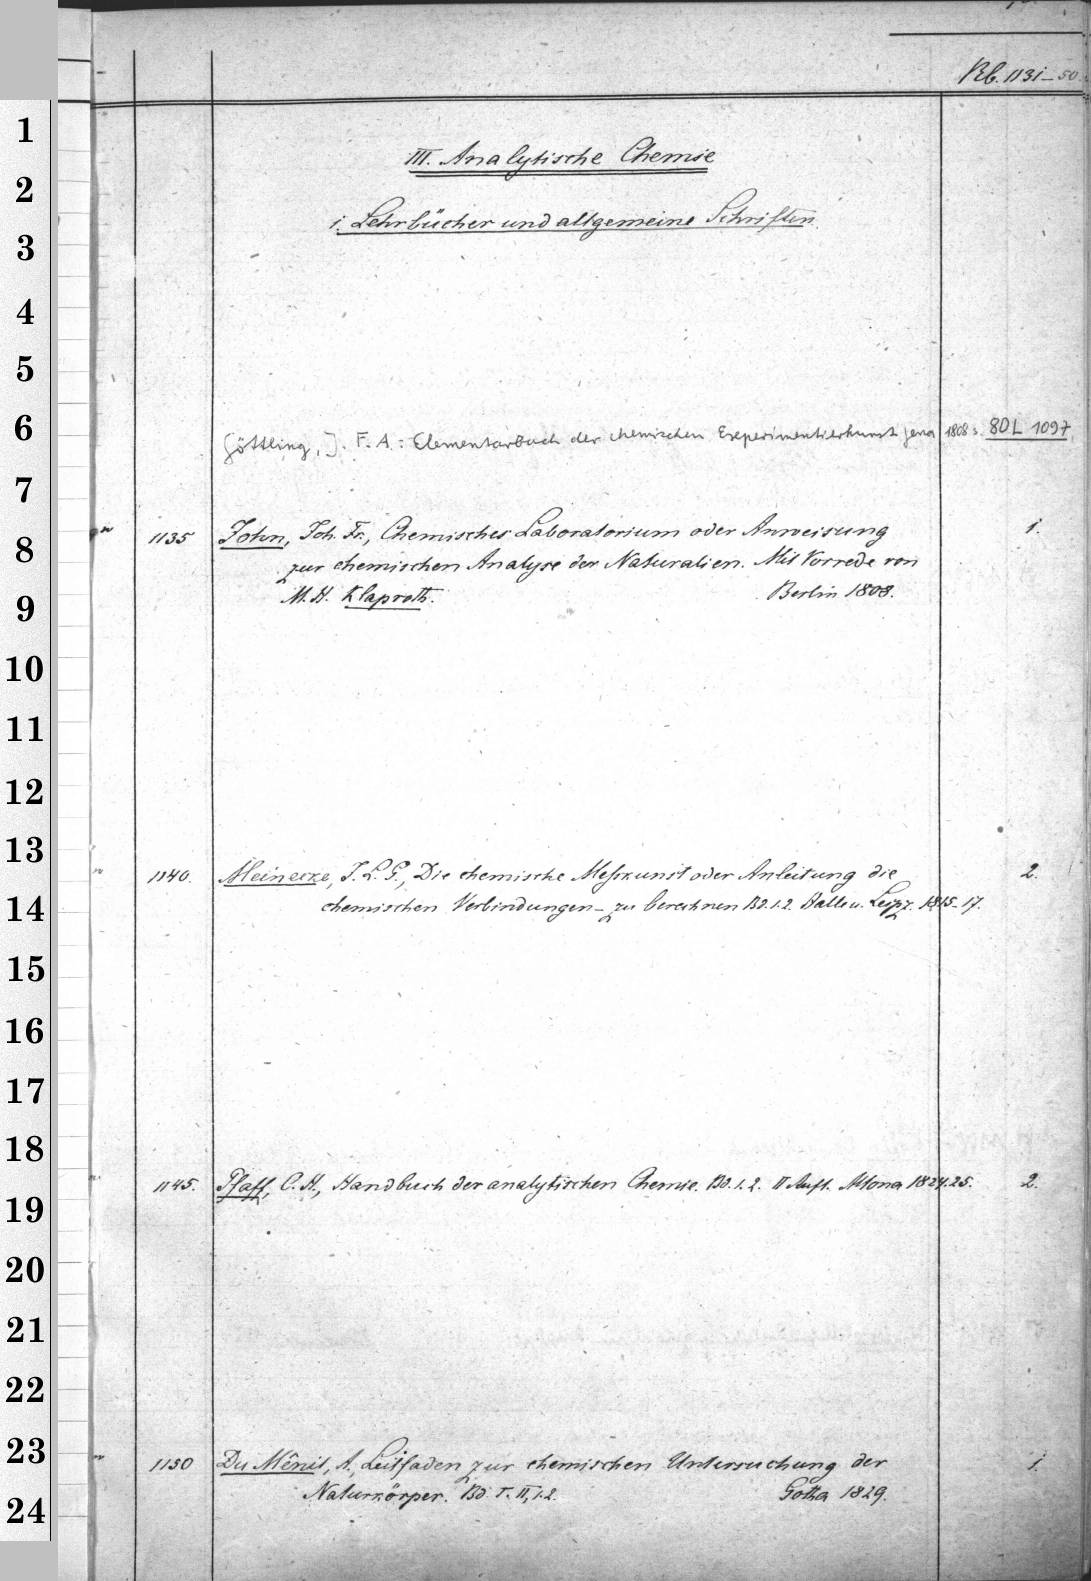 Rb. 1131-50
1
2
3
4
5
6
7
8
9
10
11
12
13
14
15
16
17
18
19
20
21
22
23
24
III. Analytische Chemie
1. Lehrbücher und allgemeine Schriften.
Göttling, J. F. A.: Elementarbuch der chemischen Experimentierkunst Jena 1808 s. 8DL 1097
1135 John, Joh. Fr., Chemisches Laboratorium oder Anweisung 1.
zur chemischen Analyse der Naturalien. Mit Vorrede von
M. H. Klaproth. Berlin 1808.
1140. Meinecke, J. L. G., Die chemische Messkunst oder Anleitung die 2.
chemischen Verbindungen - zu berechnen Bd. 1.2. Halle u. Leipz. 1815-17.
1145. Pfaff, C. H., Handbuch der analytischen Chemie. Bd. 1. 2. II Aufl. Altona 1824.25. 2.
1150 Du Mênil, A., Leitfaden zur chemischen Untersuchung der 1.
Naturkörper. Bd. I. II, 1.2. Gotha 1829.